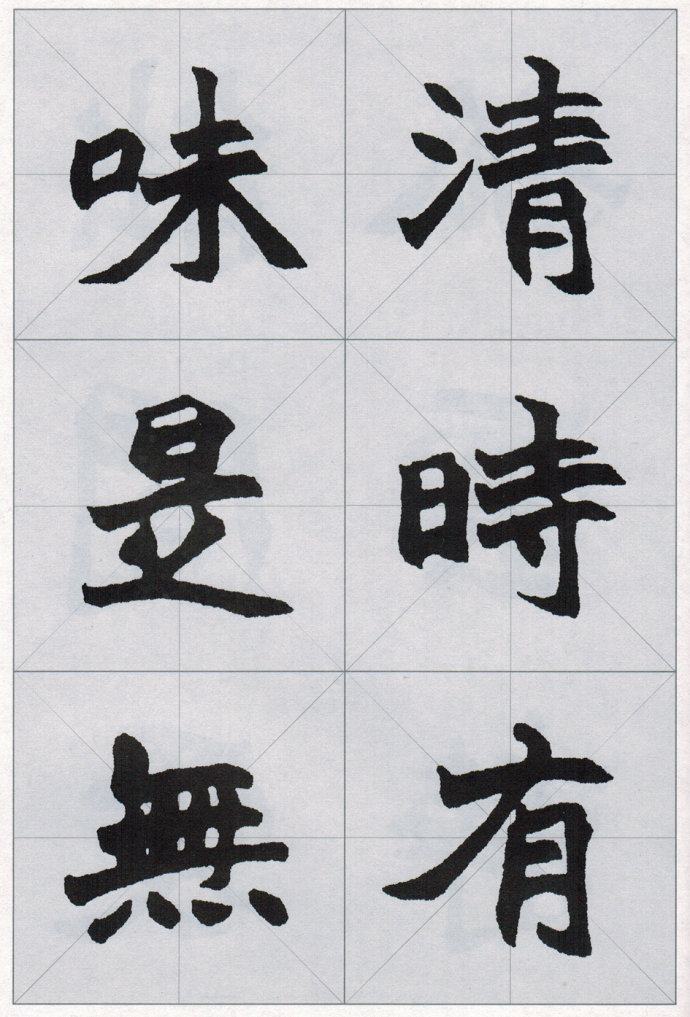 清時有
味是無